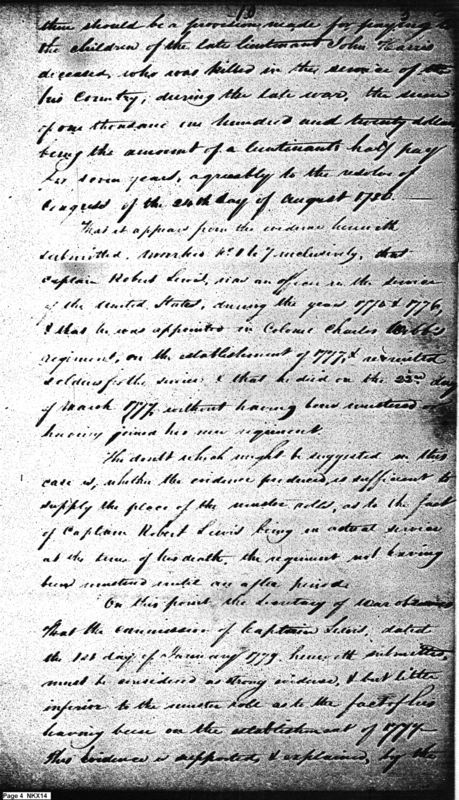 there should be a provision made for paying to
the children of the late lieutenant John Harris
deceased, who was killed in the service of
his Country, during the late war, the sum
of one thousand one hundred and twenty dollars
being the amount of a lieutenants half pay
for seven years, agreeably to the resolve of
Congress of the 24th day of August 1780.
That it appears from the evidence herewith
submitted, marked No. 1 to 7 inclusively, that
Captain Robert Lewis, was an officer in the service
of the United States, during the year 1775 & 1776,
& that he was appointed in Colonel Charles Webb's
regiment, on the establishment of 1777, & recruited
soldiers for the service & that he died on the 22nd day
of March 1777, without having been mustered or
having joined his new regiment.
The doubt which might be suggested in this
case is, whether the evidence produced, is sufficient to
supply the place of the muster rolls, as to the fact
of Captain Robert Lewis being in actual service
at the time of his death, the regiment not having
been mustered until an after period.
On this point, the Secretary of War observes
That the commission of Captain Lewis, dated
the 1st day of January 1777, herewith submitted,
must be considered as strong evidence, & but little
inferior to the muster roll as to the fact of his
having been on the establishment of 1777
This evidence is supported, & explained, by the
Page 4 NKX14